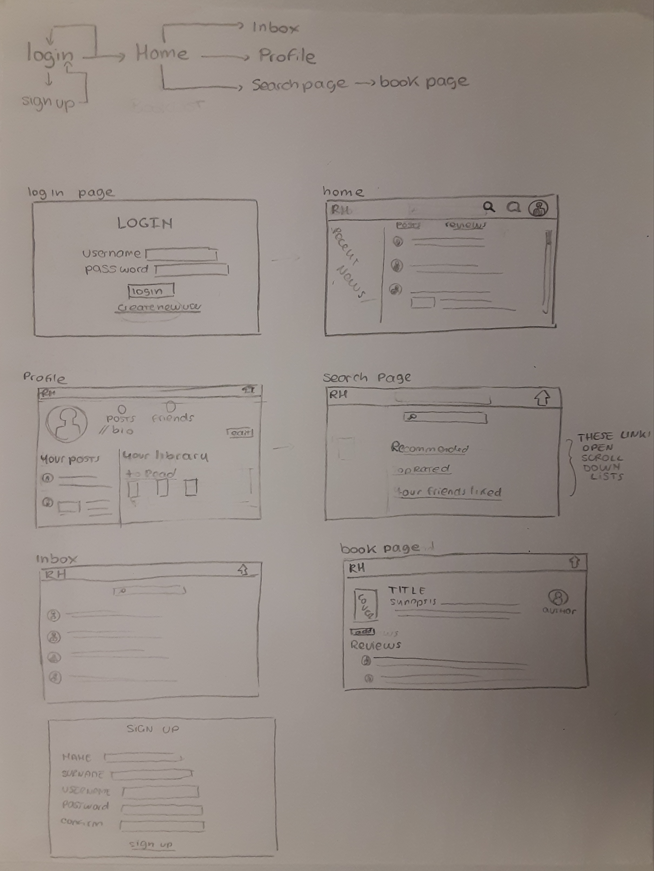 Inbox
login Home Profile
sign up Search page book page
log in page
LOGIN
username
password
login
home
RH
Posts reviews
Profile
RH
0 0
Posts friends
// bio
edit
Your posts
Your library
to read
Search Page
RH
Recommended
Your friends liked
THESE LINKS
OPEN
SCROLL
DOWN
LISTS
Inbox
RH
book page
RH
COVER
TITLE
Synopsis
author
add
Reviews
SIGN UP
NAME
SURNAME
USERNAME
Password
confirm
sign up